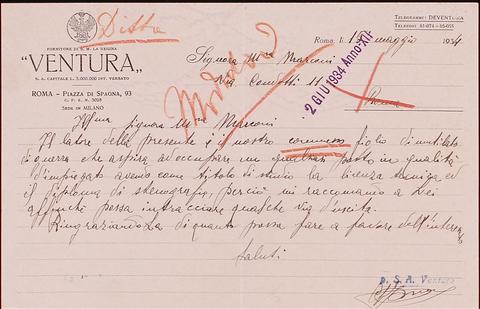 Ditta
TELEGRAMMI: DEVENTURA
TELEFONI: 61-074 - 65-055
FORNITORE DI S. M. LA REGINA
"VENTURA„
S. A. CAPITALE L. 3.000.000 INT. VERSATO
ROMA - PIAZZA DI SPAGNA, 93
C. P. E. N. 5028
SEDE IN MILANO
Roma, li 15 maggio 1934
Signora Mma Marconi
Via Condotti 11
Roma
2 GIU 1934 Anno XII
Ill/ma Signora Mma Marconi
Il latore della presente è il nostro commesso figlio di mutilato
di guerra che aspira ad occupare un qualsiasi posto in qualità
d'impiegato avendo come titolo di studio la licenza tecnica ed
il diploma di stenografo, perciò mi raccomando a Lei
affinchè possa intracciare qualche via d'uscita.
Ringraziandola di quanto possa fare a favore dell'interessato
Saluti
p. S. A. Ventura